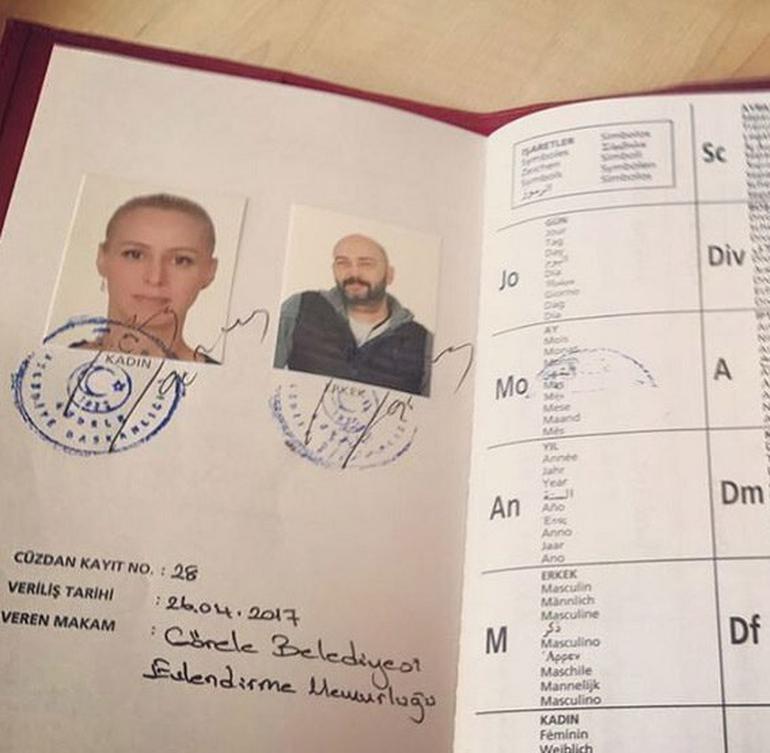 KADIN
ERKEK
T.C.
GÖRELE
BELEDİYE BAŞKANLIĞI
CÜZDAN KAYIT NO. : 28
VERİLİŞ TARİHİ : 26.04.2017
VEREN MAKAM : Görele Belediyesi
Evlendirme Memurluğu
İŞARETLER Simbolos
Symboles
Zeichen Simboli
Symbols Symbolen
الرموز Simbolos
Sc
Jo
GÜN
Jour
Tag
Day
اليوم
Dia
Giorno
Dag
Dia
Div
Mo
AY
Mois
Monat
Mes
Mese
Maand
Mês
A
An
YIL
Année
Jahr
Year
السنة
Año
Έτος
Anno
Jaar
Ano
Dm
M
ERKEK
Masculin
Männlich
Masculine
ذكر
Masculino
Άρρεν
Maschile
Mannelijk
Masculino
Df
KADIN
Féminin
Weiblich